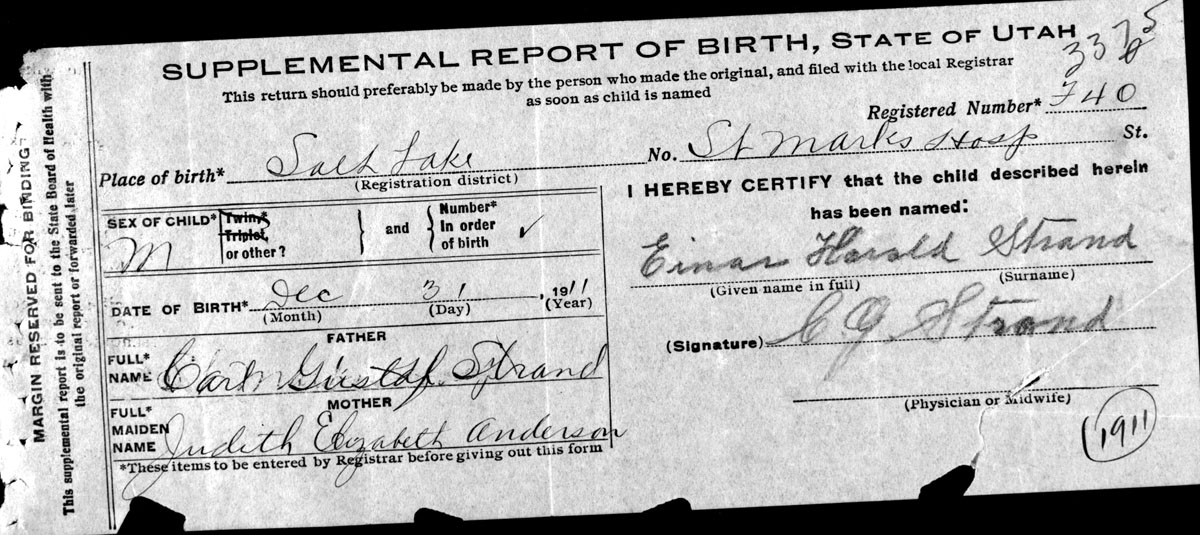 SUPPLEMENTAL REPORT OF BIRTH, STATE OF UTAH
This return should preferably be made by the person who made the original, and filed with the local Registrar
as soon as child is named
Registered Number* 740
Place of birth* Salt Lake No. St Marks Hosp St.
(Registration district)
SEX OF CHILD* M
Twin,*
Triplet,
or other?
and
Number*
In order
of birth ✓
DATE OF BIRTH* Dec 31, 1911
(Month) (Day) (Year)
FATHER
FULL*
NAME Carl Gustaf Strand
MOTHER
FULL*
MAIDEN
NAME Judith Elizabeth Anderson
*These items to be entered by Registrar before giving out this form
I HEREBY CERTIFY that the child described herein
has been named:
Einar Harold Strand
(Given name in full) (Surname)
(Signature) C G Strand
(Physician or Midwife)
1911
MARGIN RESERVED FOR BINDING
This supplemental report is to be sent to the State Board of Health with
the original report or forwarded later